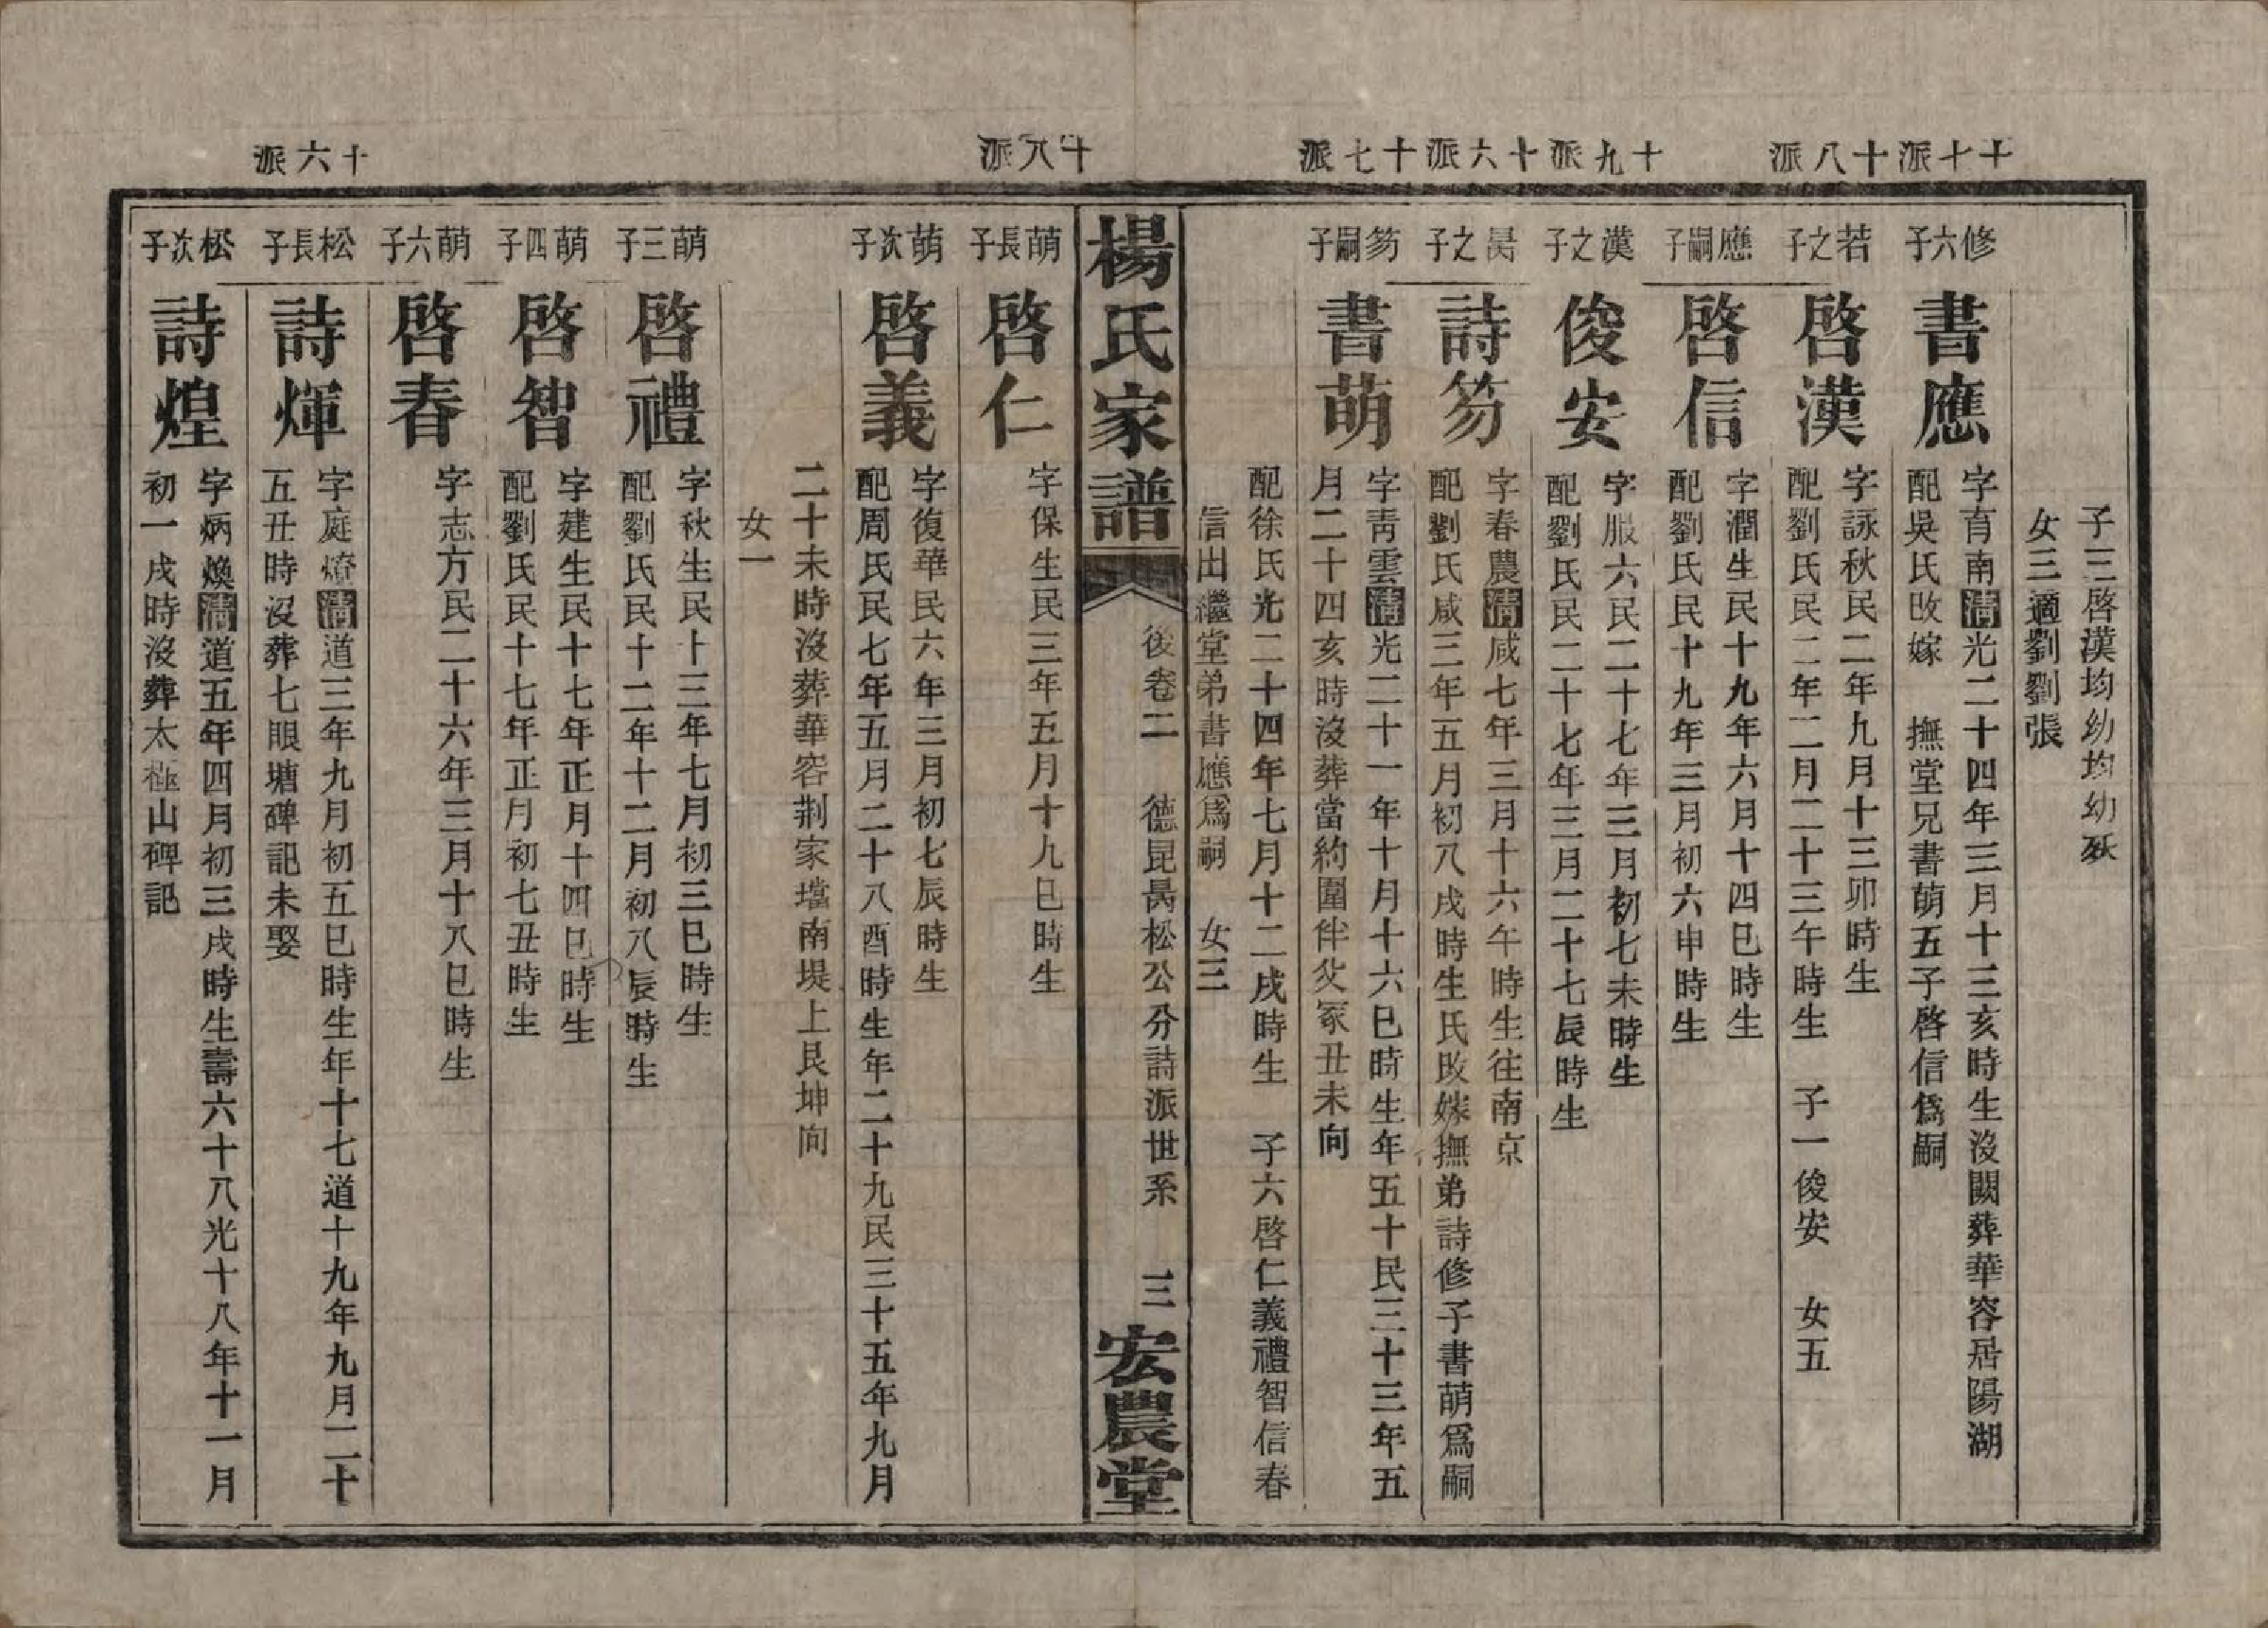 十七派
十八派
十九派
十六派
十七派
子三啓漢均幼均幼殀
女三適劉劉張
修六子
書應
字育南清光二十四年三月十三亥時生沒闕葬華容居陽湖
配吳氏改嫁 撫堂兄書萌五子啓信爲嗣
若之子
啓漢
字詠秋民二年九月十三卯時生
配劉氏民二年二月二十三午時生 子一俊安 女五
應嗣子
啓信
字潤生民十九年六月十四巳時生
配劉氏民十九年三月初六申時生
漢之子
俊安
字服六民二十七年三月初七未時生
配劉氏民二十七年三月二十七辰時生
暠之子
詩笏
字春農清咸七年三月十六午時生往南京
配劉氏咸三年五月初八戌時生氏改嫁撫弟詩修子書萌爲嗣
笏嗣子
書萌
字靑雲清光二十一年十月十六巳時生年五十民三十三年五
月二十四亥時沒葬當約圍伴父冢丑未向
配徐氏光二十四年七月十二戌時生 子六啓仁義禮智信春
信出繼堂弟書應爲嗣 女三
楊氏家譜
後卷二 德昆暠松公分詩派世系 三
宏農堂
十八派
萌長子
啓仁
字保生民三年五月十九巳時生
萌次子
啓義
字復華民六年三月初七辰時生
配周氏民七年五月二十八酉時生年二十九民三十五年九月
二十未時沒葬華容荆家壋南堤上艮坤向
女一
萌三子
啓禮
字秋生民十三年七月初三巳時生
配劉氏民十二年十二月初八辰時生
萌四子
啓智
字建生民十七年正月十四巳時生
配劉氏民十七年正月初七丑時生
萌六子
啓春
字志方民二十六年三月十八巳時生
十六派
松長子
詩煇
字庭燎清道三年九月初五巳時生年十七道十九年九月二十
五丑時沒葬七眼塘碑記未娶
松次子
詩煌
字炳煥清道五年四月初三戌時生壽六十八光十八年十一月
初一戌時沒葬太極山碑記